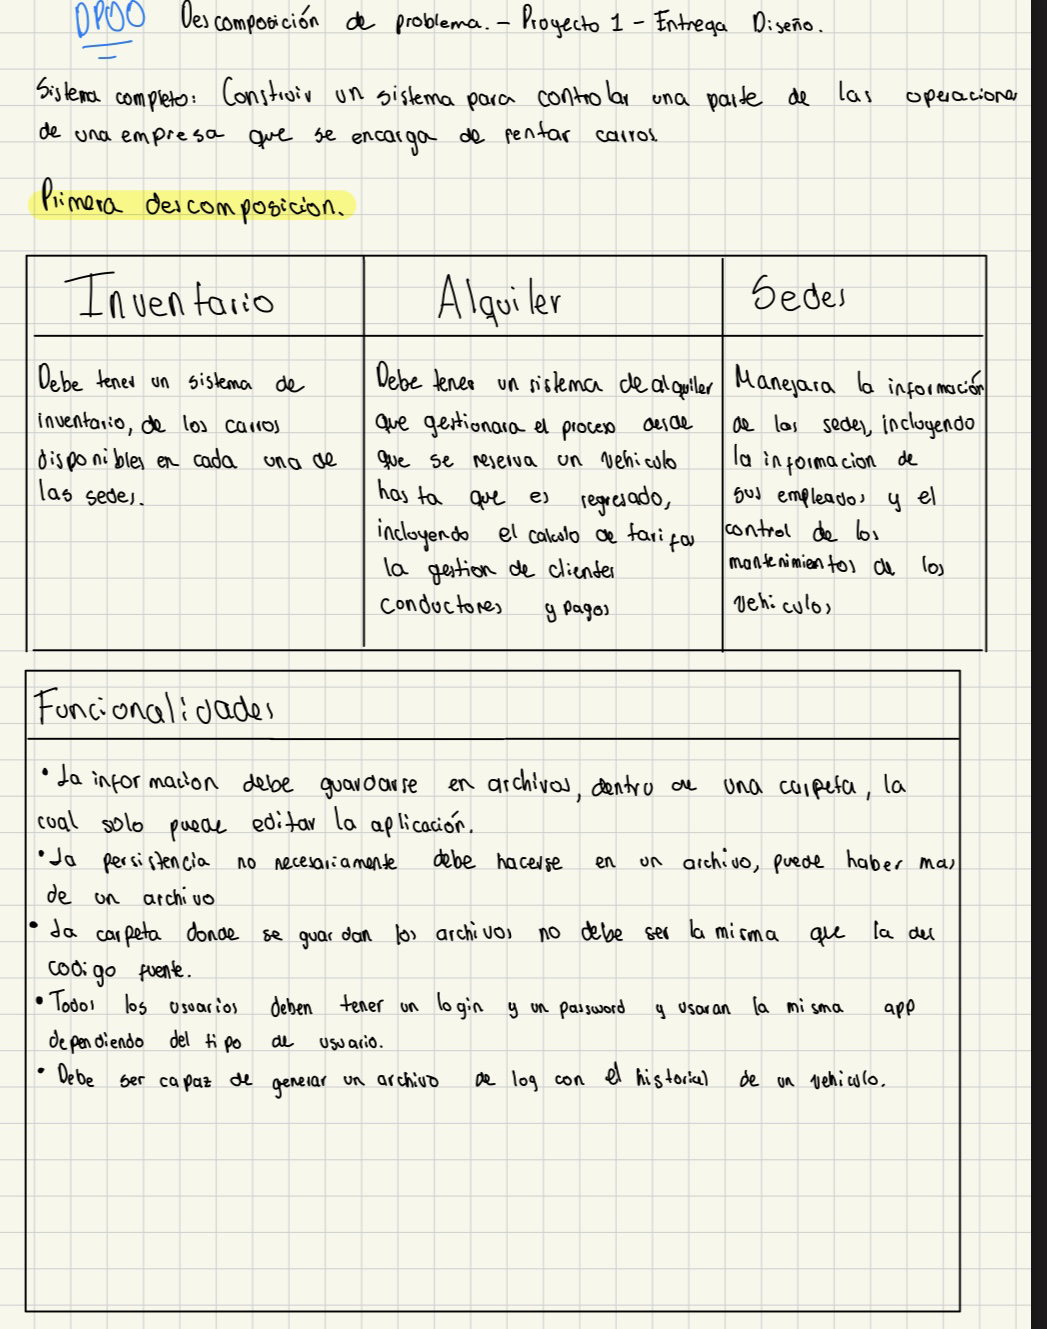 DPOO Descomposición de problema. - Proyecto 1 - Entrega Diseño.
Sistema completo: Construir un sistema para controlar una parte de las operaciones
de una empresa que se encarga de rentar carros.
Primera descomposicion.
Inventario
Debe tener un sistema de
inventario, de los carros
disponibles en cada una de
las sedes.
Alquiler
Debe tener un sistema de alquiler
que gestionara el proceso desde
que se reserva un vehiculo
hasta que es regresado,
incluyendo el calculo de tarifas
la gestion de clientes
conductores y pagos
Sedes
Manejara la información
de las sedes, incluyendo
la informacion de
sus empleados y el
control de los
mantenimientos de los
vehiculos
Funcionalidades
• La informacion debe guardarse en archivos, dentro de una carpeta, la
cual solo puede editar la aplicación.
• La persistencia no necesariamente debe hacerse en un archivo, puede haber mas
de un archivo
• La carpeta donde se guardan los archivos no debe ser la misma que la del
codigo fuente.
• Todos los usuarios deben tener un login y un password y usaran la misma app
dependiendo del tipo de usuario.
• Debe ser capaz de generar un archivo de log con el historial de un vehiculo.